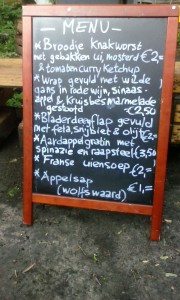 — MENU —
* Broodje Knakworst
met gebakken ui, mosterd €2,=
& tomaten curry Ketchup
* Wrap gevuld met wilde
gans in rode wijn, sinaas-
appel & Kruisbesmarmelade
gestoofd €2,50
* Bladerdeegflap gevuld
met feta, snijbiet & olijf €2,=
* Aardappelgratin met
spinazie en raapsteel €3,50
* Franse uiensoep €2,=
* Appelsap
(wolfswaard) €1,=